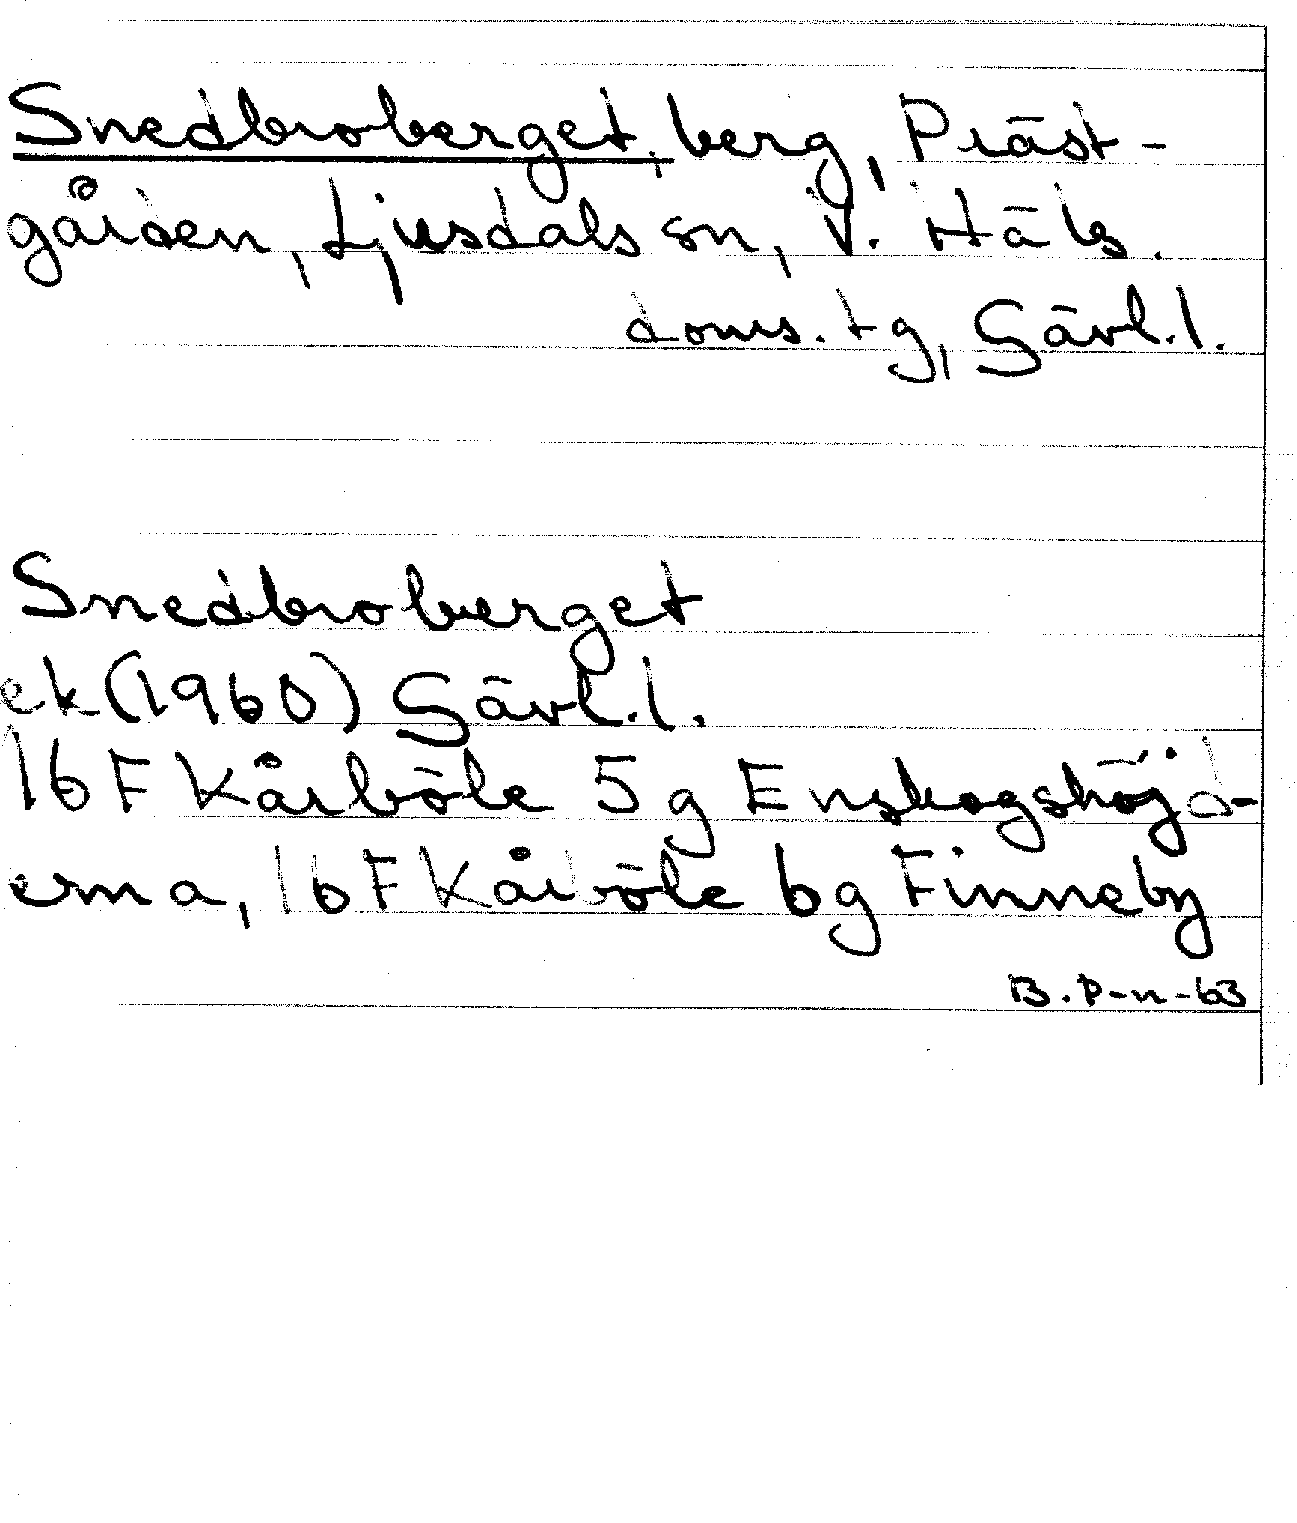 Snedbroberget, berg, Präst-
gården, Ljusdals sn, V. Häls.
doms. tg, Gävl.l.
Snedbroberget
ek (1960) Gävl.l.
16 F Kårböle 5 g Enskogshöjd-
erna, 16 F Kårböle 6g Finneby
B. P-n -63